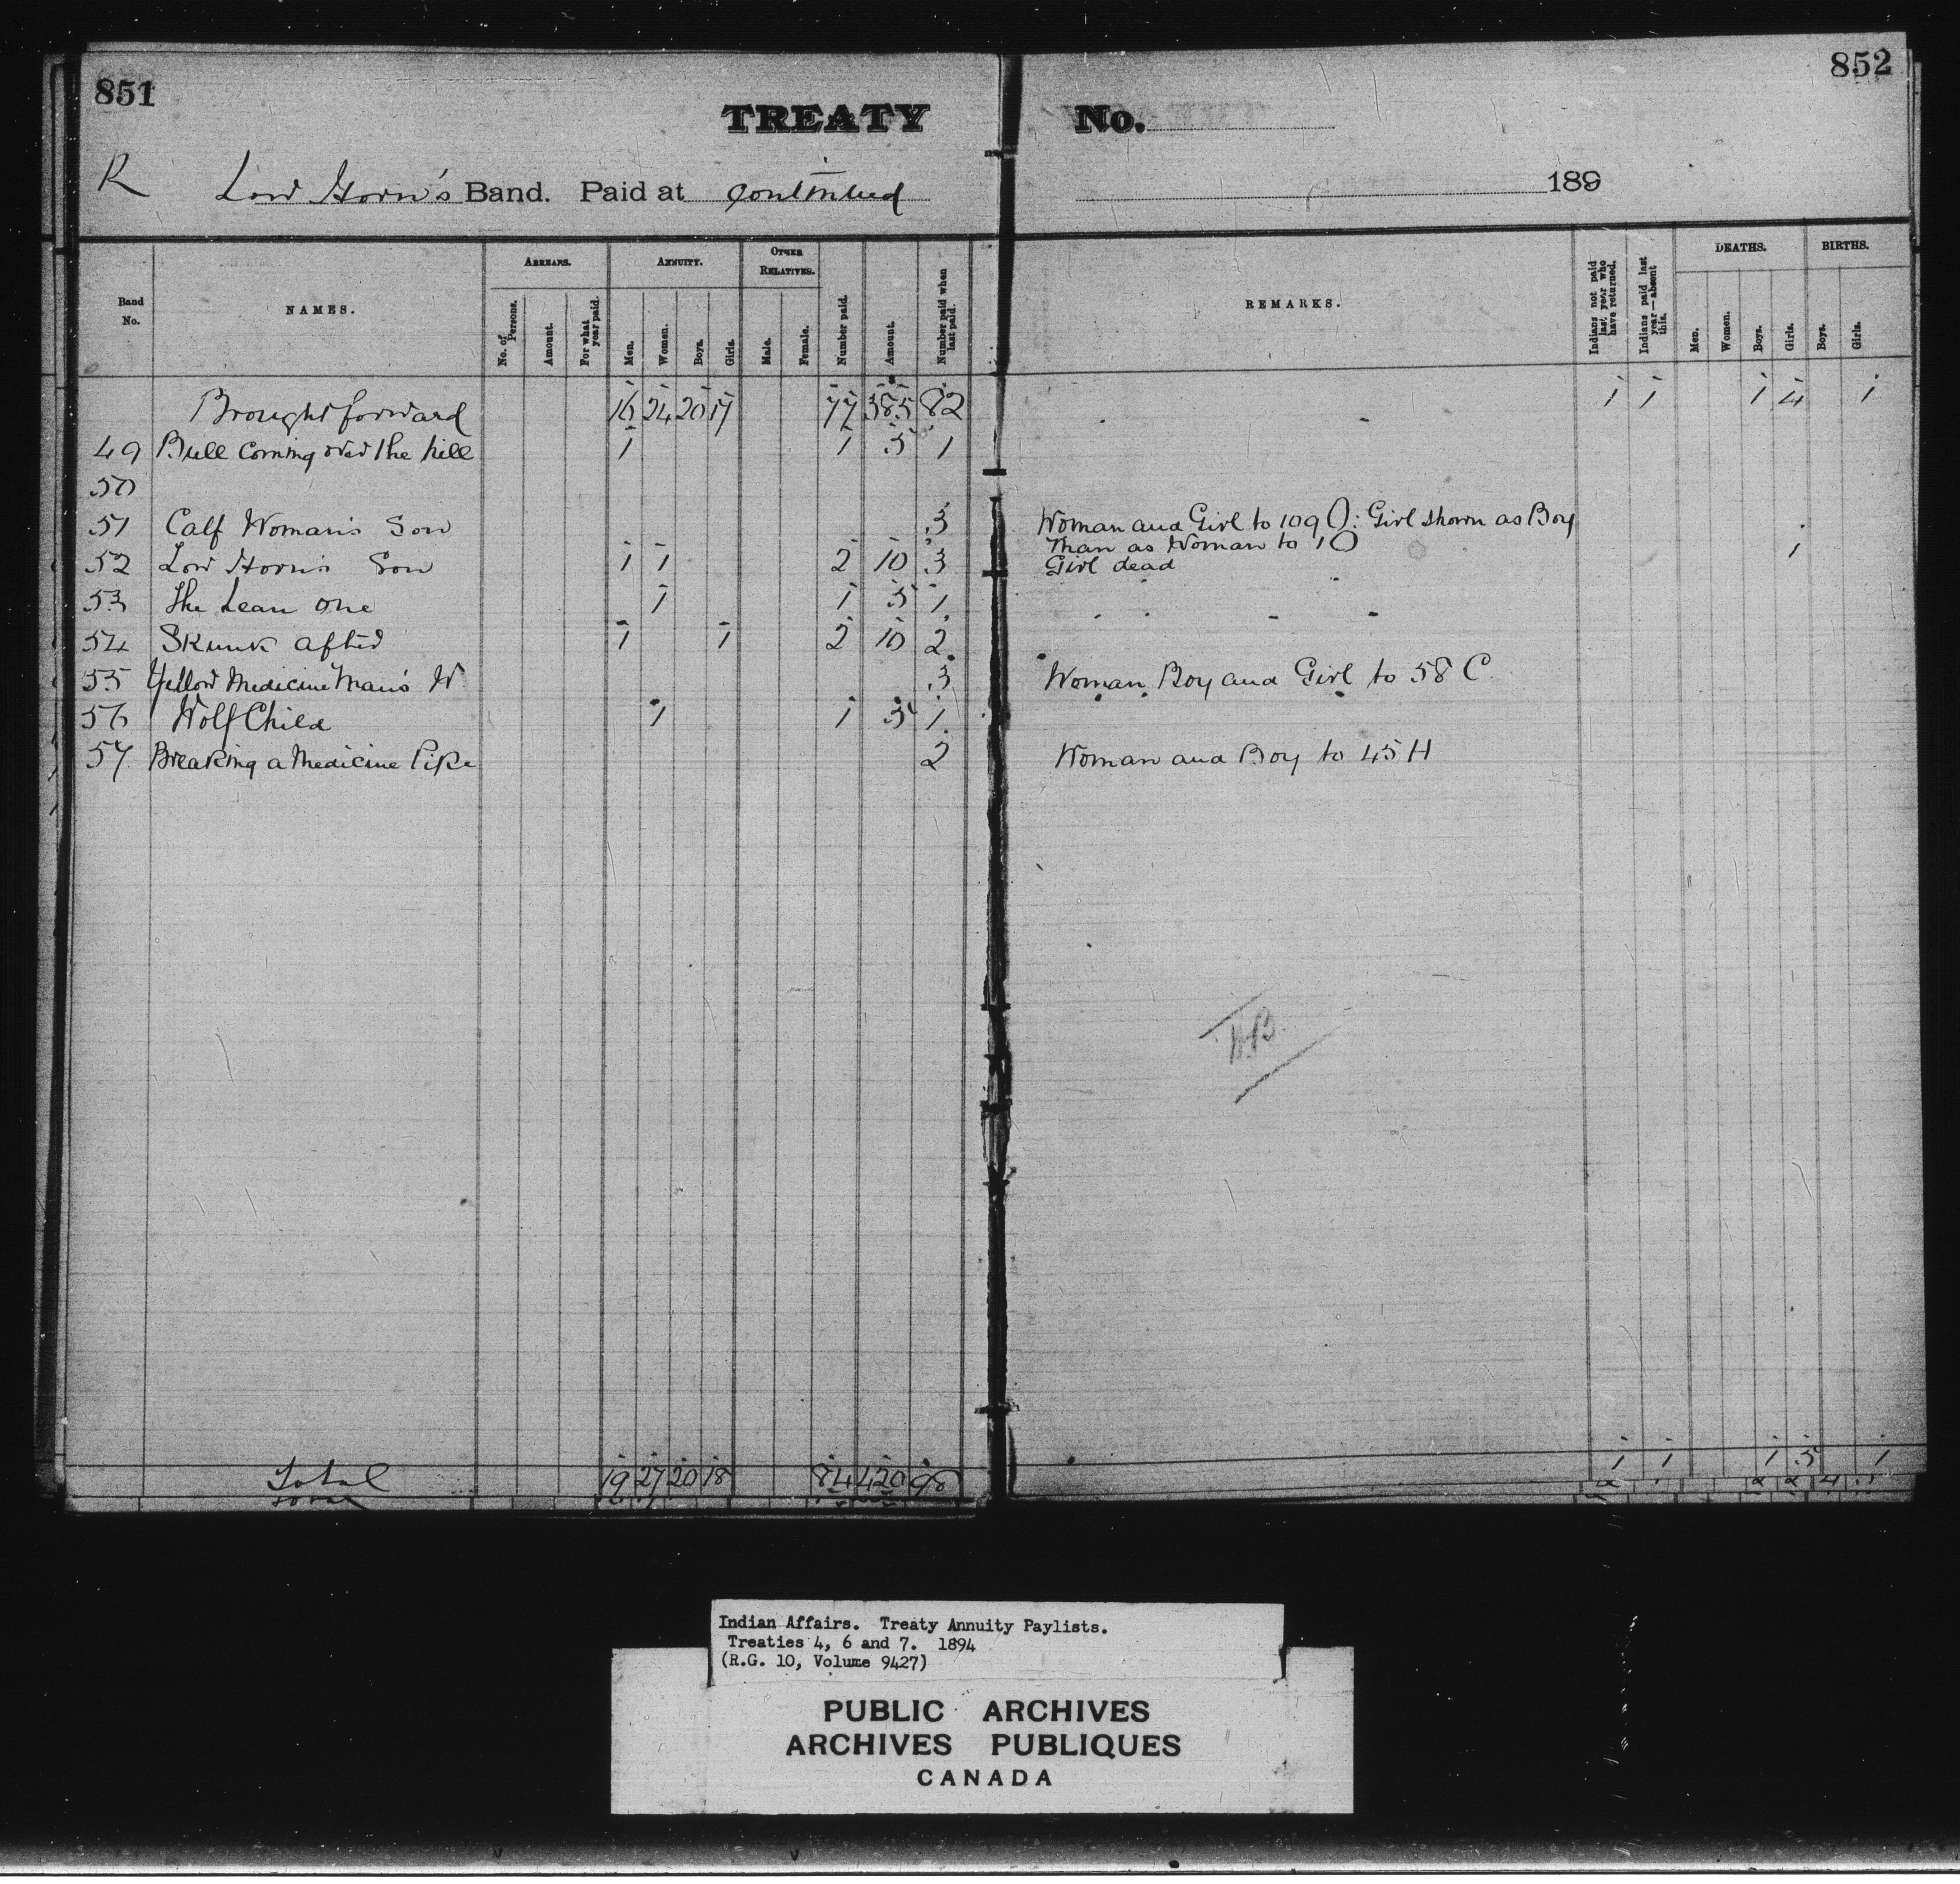 851
852
TREATY No.
R
Low Horn's Band. Paid at Continued 189
Band No.
NAMES.
ARREARS.
No. of Persons.
Amount.
For what year paid.
ANNUITY.
Men.
Women.
Boys.
Girls.
OTHER RELATIVES.
Male.
Female.
Number paid.
Amount.
Number paid when last paid.
REMARKS.
Indians not paid last year who have returned.
Indians paid last year—absent this.
DEATHS.
Men.
Women.
Boys.
Girls.
BIRTHS.
Boys.
Girls.
Brought forward 16 24 20 17 77 385 82 1 1 1 4 1
49 Bull Coming over the hill 1 1 5 1
50
51 Calf Woman's Son 3 Woman and Girl to 109 O: Girl shown as Boy
Man as Woman to 1 O
52 Low Horn's Son 1 1 2 10 3 Girl dead 1
53 The Lean One 1 1 5 1
54 Skunk after 1 1 2 10 2
55 Yellow Medicine Man's W 3 Woman Boy and Girl to 58 C.
56 Wolf Child 1 1 5 1
57 Breaking a Medicine Pipe 2 Woman and Boy to 45 H
Total 19 27 20 18 84 420 98 1 1 1 5 1
Indian Affairs. Treaty Annuity Paylists.
Treaties 4, 6 and 7. 1894
(R.G. 10, Volume 9427)
PUBLIC ARCHIVES
ARCHIVES PUBLIQUES
CANADA